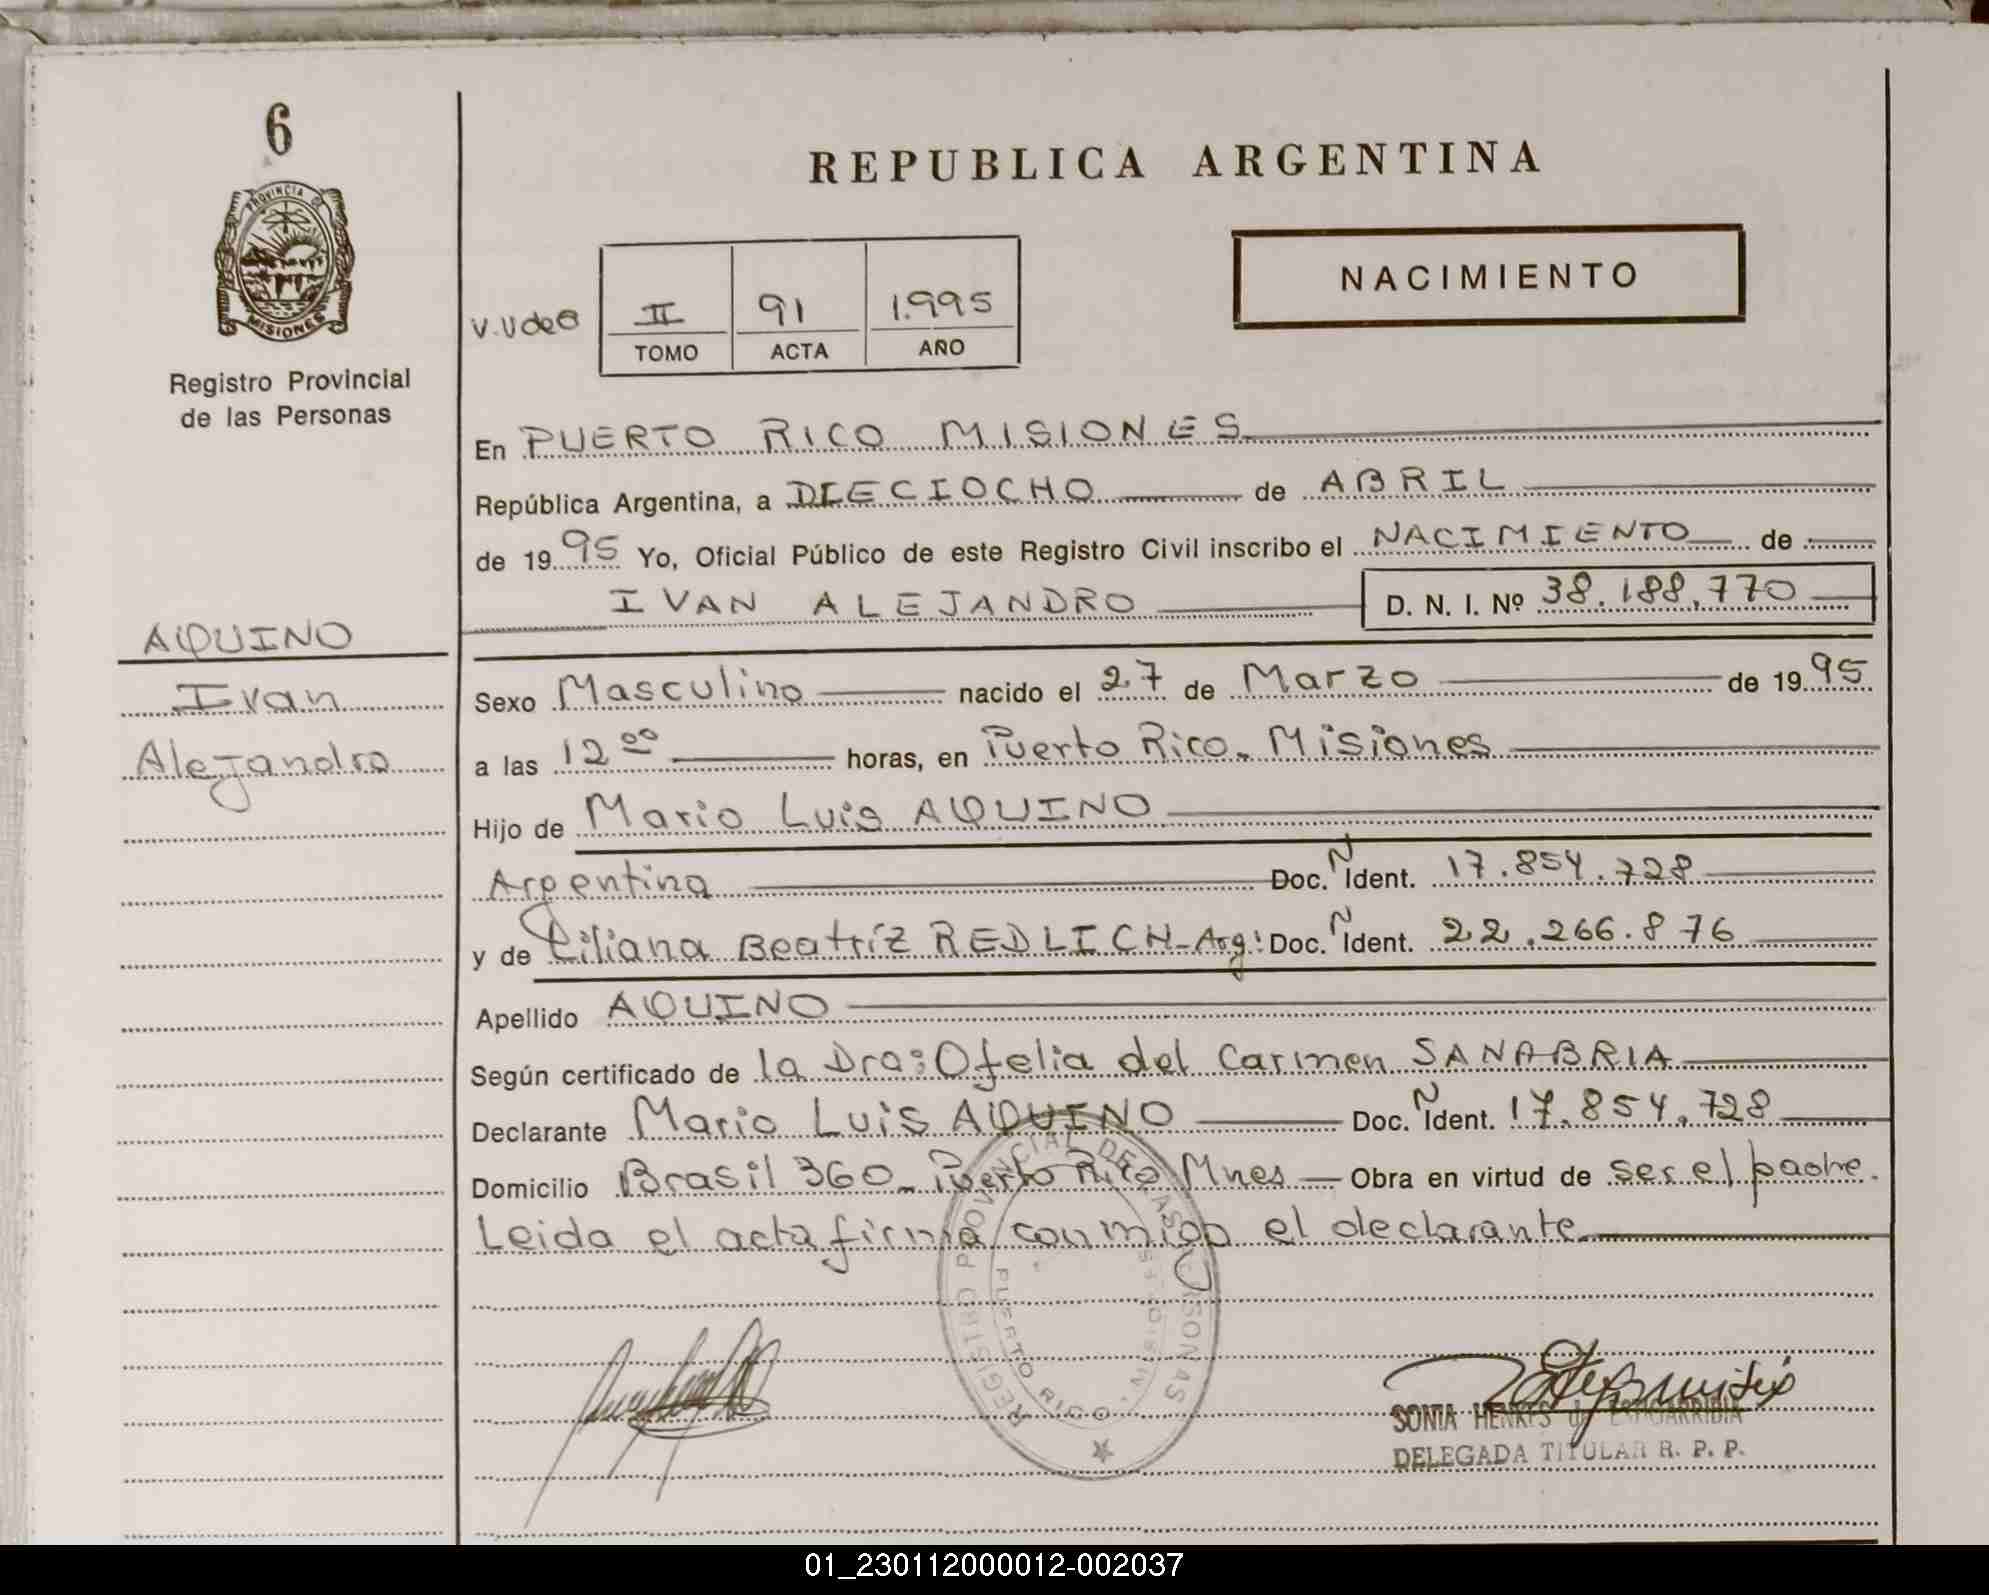 6
PROVINCIA DE
MISIONES
Registro Provincial
de las Personas
AQUINO
Ivan
Alejandro
REPUBLICA ARGENTINA
NACIMIENTO
II 91 1.995
TOMO ACTA AÑO
En PUERTO RICO MISIONES
República Argentina, a DIECIOCHO de ABRIL
de 1995 Yo, Oficial Público de este Registro Civil inscribo el NACIMIENTO de
IVAN ALEJANDRO D. N. I. Nº 38.188.770
Sexo Masculino nacido el 27 de Marzo de 1995
a las 12 00 horas, en Puerto Rico - Misiones
Hijo de Mario Luis AQUINO
Argentina Doc. Ñ Ident. 17.854.728
y de Liliana Beatríz REDLICH - Arg: Doc. Ñ Ident. 22.266.876
Apellido AQUINO
Según certificado de la Dra: Ofelia del Carmen SANABRIA
Declarante Mario Luis AQUINO Doc. Ñ Ident. 17.854.728
Domicilio Brasil 360 - Puerto Rico Mnes - Obra en virtud de ser el padre.
Leida el acta firma conmigo el declarante
REGISTRO PROVINCIAL DE LAS PERSONAS
PUERTO RICO
SONIA HENKES de
DELEGADA TITULAR R. P. P.
01_230112000012-002037